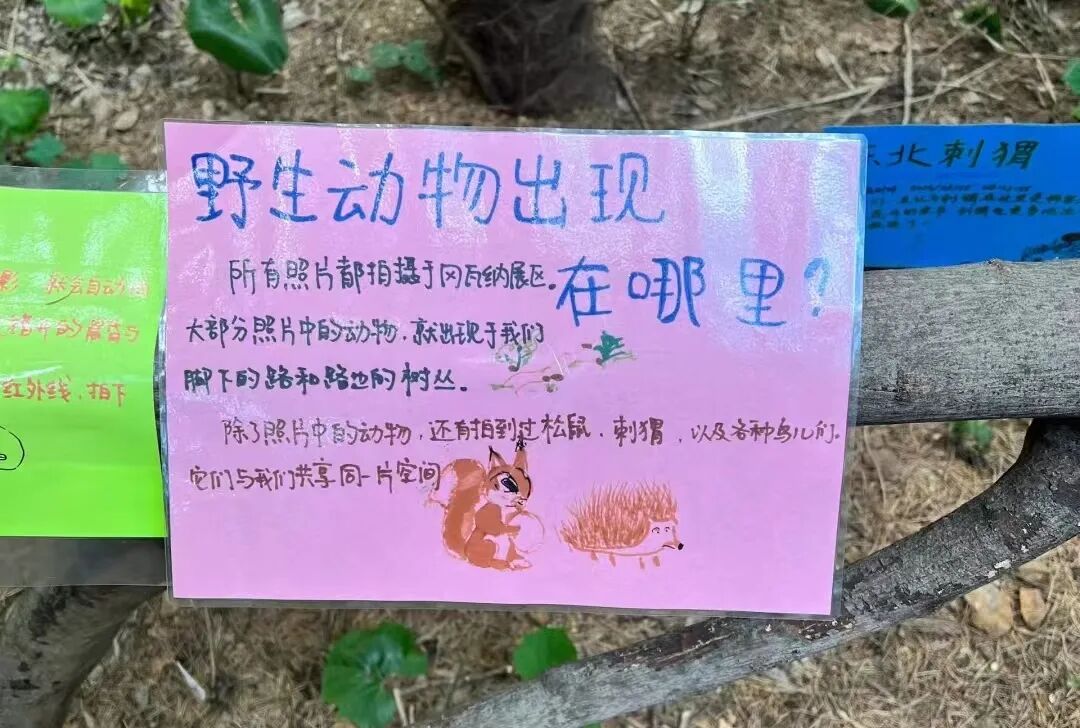 野生动物出现
在哪里?
所有照片都拍摄于冈瓦纳展区。
大部分照片中的动物,就出现于我们
脚下的路和路边的树丛。
除了照片中的动物,还有拍到过松鼠、刺猬,以及各种鸟儿们。
它们与我们共享同一片空间
就会自动
红外线,拍下
北刺猬